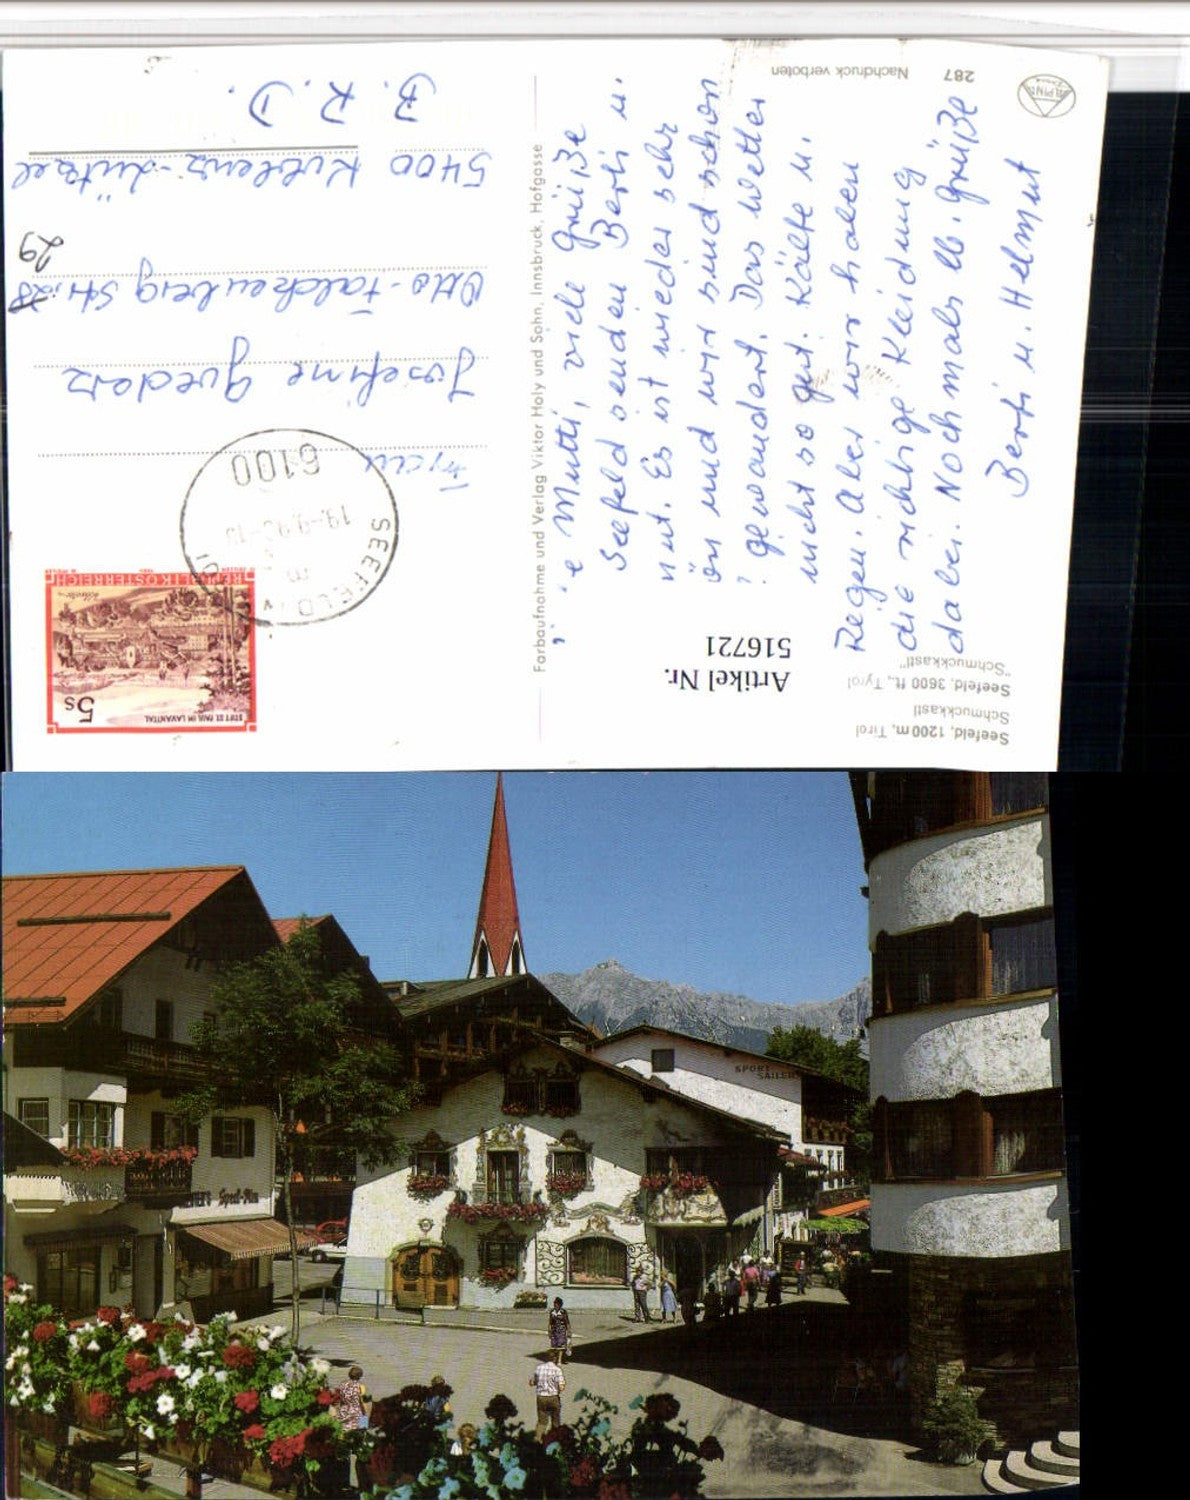 287 Nachdruck verboten
ALPINA
Seefeld, 1200 m, Tirol
Schmuckkastl
Seefeld, 3600 ft., Tyrol
"Schmuckkastl"
Artikel Nr.
516721
e Mutti, viele Grüße
Seefeld senden Berti u.
Es ist wieder sehr
ön und wir sind schon
gewandert. Das Wetter
nicht so gut. Kälte u.
Regen. Aber wir haben
die richtige Kleidung
dabei. Nochmals lb. Grüße
Berti u. Helmut
Farbaufnahme und Verlag Viktor Holy und Sohn, Innsbruck, Hofgasse
STIFT ST. PAUL IM LAVANTTAL
5s
REPUBLIK ÖSTERREICH
6100
SEEFELD
Frau
Josefine
Otto-Falckenberg Str. 28
29
5400 Koblenz-Lützel
B.R.D.
SPORT
SAILER